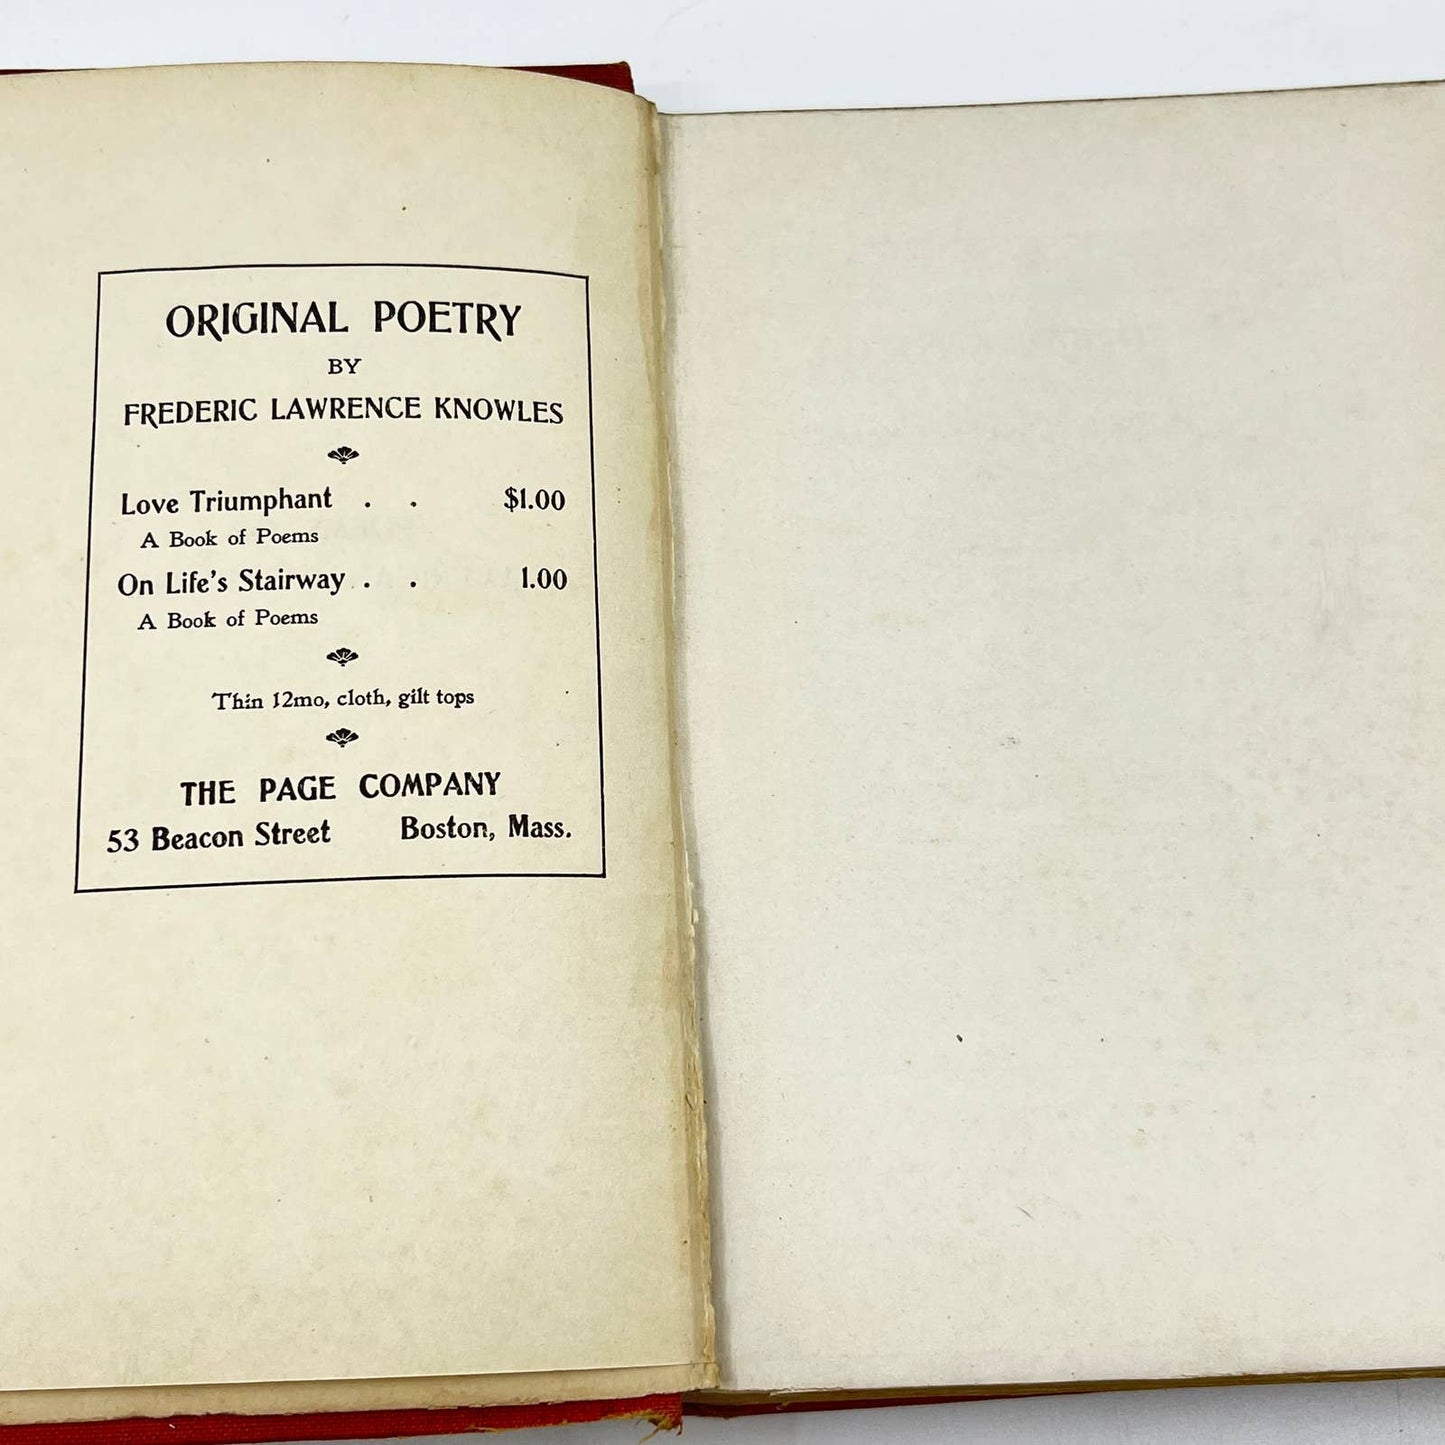 ORIGINAL POETRY
BY
FREDERIC LAWRENCE KNOWLES
Love Triumphant . . $1.00
A Book of Poems
On Life's Stairway . . 1.00
A Book of Poems
Thin 12mo, cloth, gilt tops
THE PAGE COMPANY
53 Beacon Street Boston, Mass.